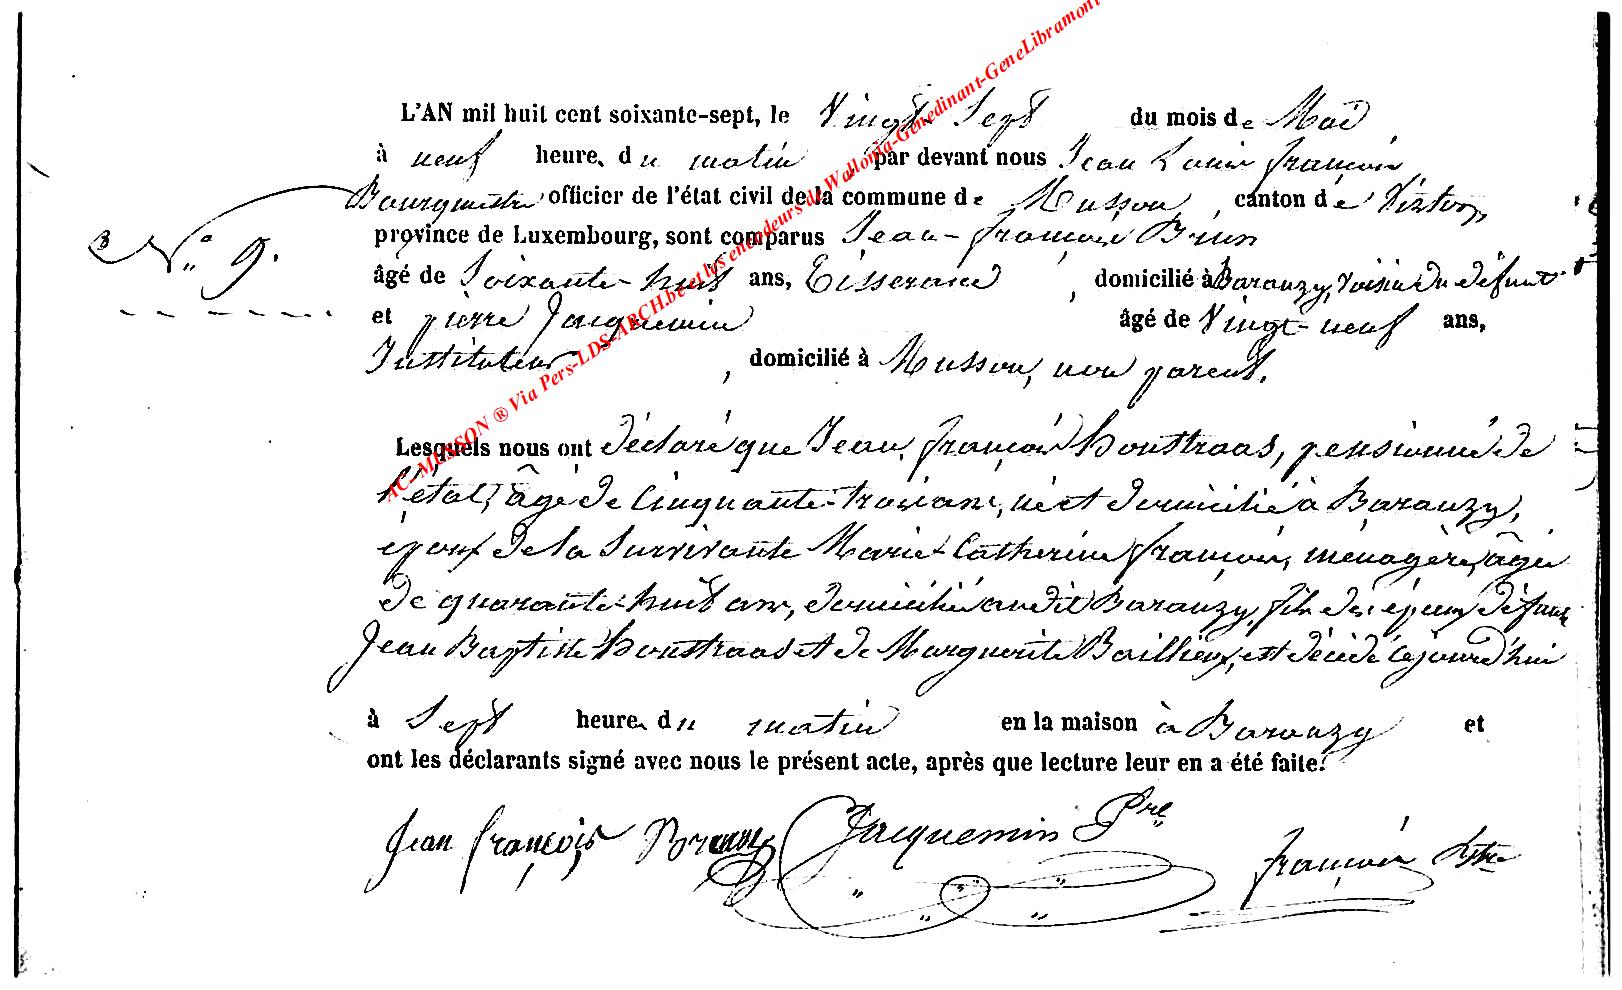 L'AN mil huit cent soixante-sept, le Vingt Sept du mois de Mai,
à neuf heure, du matin par devant nous Jean Louis françois
Bourgmestre officier de l'état civil de la commune de Musson, canton de Virton,
province de Luxembourg, sont comparus Jean-françois Brun
N.° 9.
âgé de Soixante-huit ans, Tisserand, domicilié à Baranzy, voisin du défunt
et pierre Jacquemin âgé de Vingt-neuf ans,
Instituteur, domicilié à Musson, non parent.
Lesquels nous ont déclaré que Jean françois Houstraas, pensionné de
l'état, âgé de Cinquante-trois ans, né et domicilié à Baranzy,
époux de la Survivante Marie-Catherine françois, ménagère, âgée
de quarante-huit ans, domicilié audit Baranzy, fils des époux défunts
Jean Baptiste Houstraas et de Marguerite Baillieux, est décédé cejourd'hui
à Sept heure du matin en la maison à Baranzy et
ont les déclarants signé avec nous le présent acte, après que lecture leur en a été faite.
Jean françois Brun Jacquemin Pre françois
AC-MUSSON ® Via Pers-LDS-ARCH.be et les entendeurs de Wallonia-Genedinant-GeneLibramont